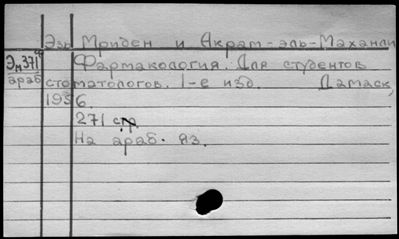 Эзз Мриден и Акрам-эль-Махаили
Эм371 Фармакология. Для студентов
араб стоматологов. 1-е изд. Дамаск,
1956.
271 стр.
На араб. яз.